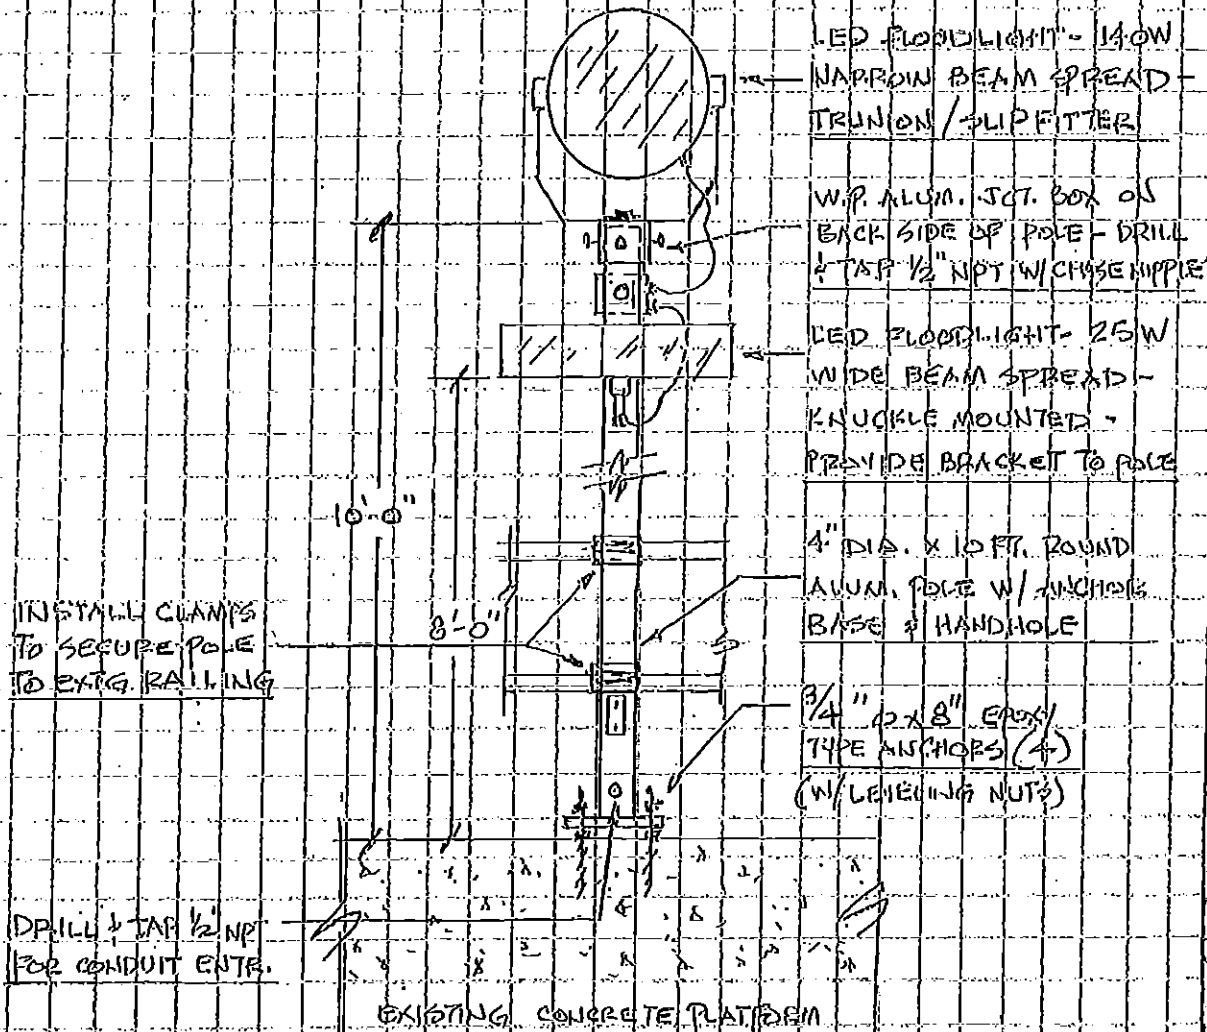 LED FLOODLIGHT - 140W
NARROW BEAM SPREAD -
TRUNION / SLIPFITTER
W.P. ALUM. JCT. BOX ON
BACK SIDE OF POLE - DRILL
& TAP 1/2" NPT W/ CHASE NIPPLE
LED FLOODLIGHT - 25W
WIDE BEAM SPREAD -
KNUCKLE MOUNTED -
PROVIDE BRACKET TO POLE
10'-0"
4" DIA. X 10 FT. ROUND
ALUM. POLE W/ ANCHOR
BASE & HANDHOLE
INSTALL CLAMPS
TO SECURE POLE
TO EXTG. RAILING
8'-0"
3/4" ø x 8" EPOXY
TYPE ANCHORS (4)
(W/ LEVELING NUTS)
DRILL & TAP 1/2" NP
FOR CONDUIT ENTR.
EXISTING CONCRETE PLATFORM